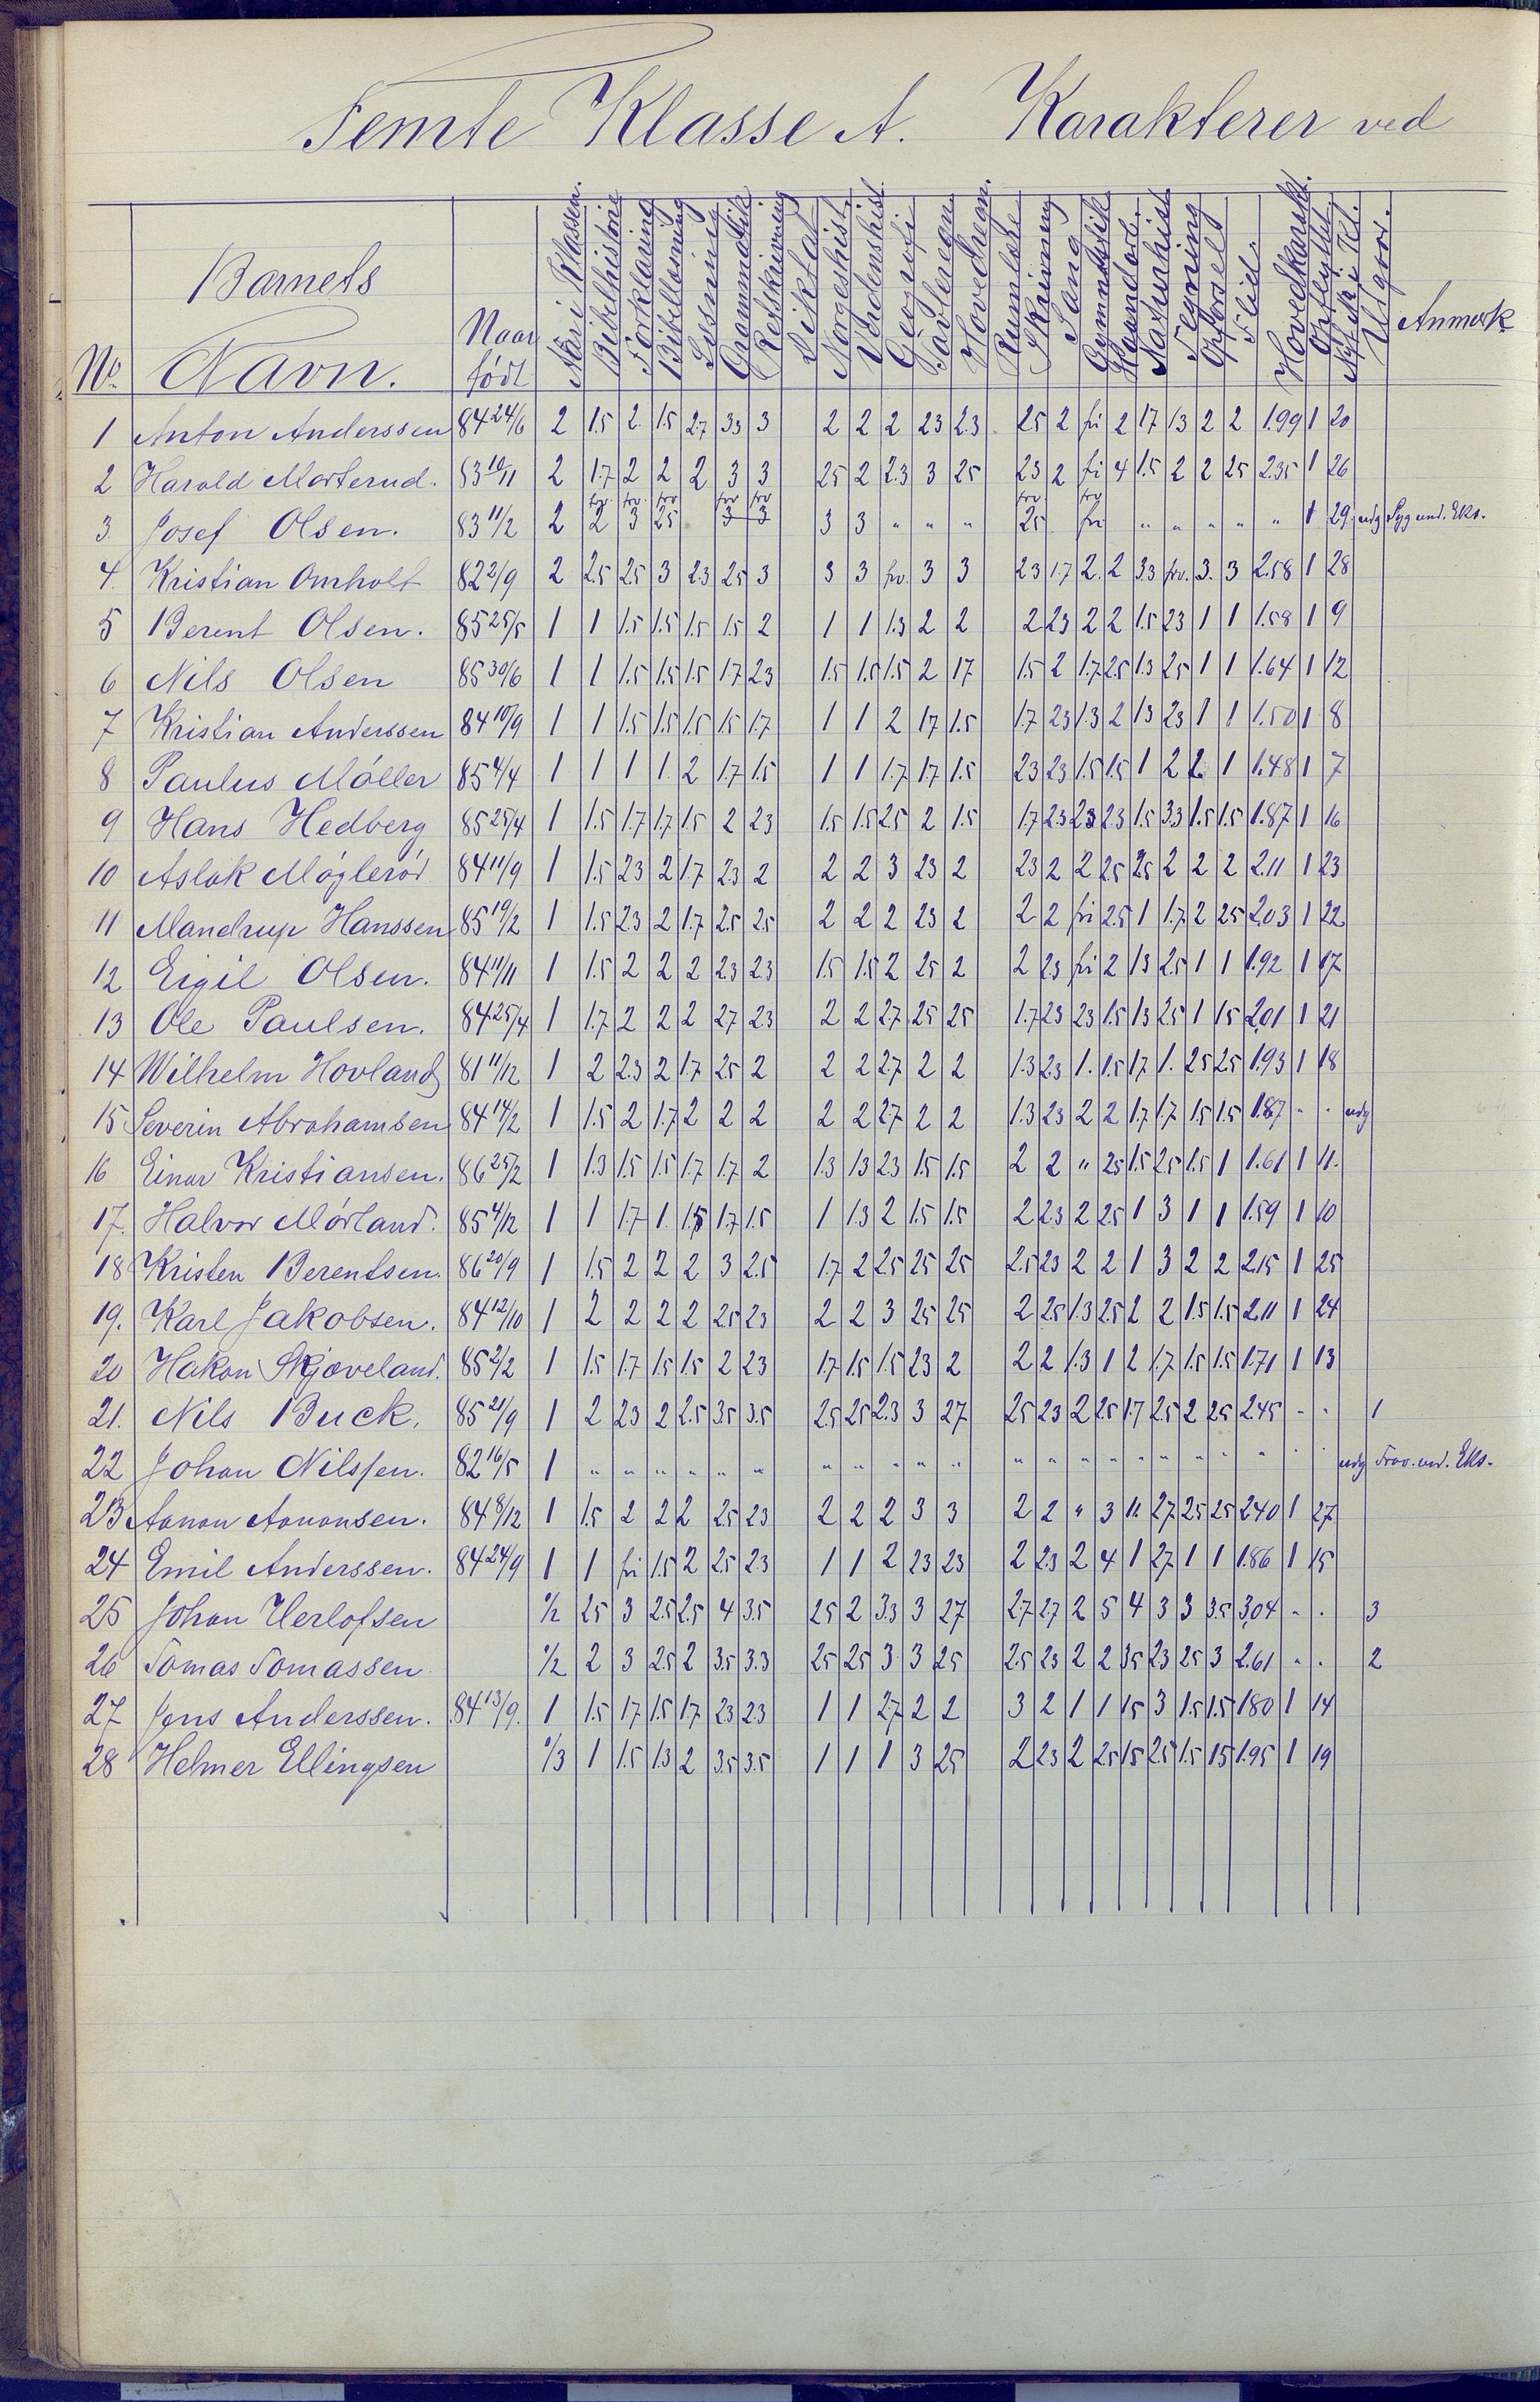 Femte Klasse A. Karakterer ved
No. Barnets Navn. Naar født Aar i Klassen. Bibelhistorie Forklaring Bibellæsning Læsning Grammatik Retskrivning Diktat Norgeshist. Verdenshist Geografi Tavleregn. Hovedregn. Rumlære Skrivning Sang Gymnastik Haandarb. Naturhist Tegning Opførsel Flid. Hovedkarakt. Opflyttet N. i Kl. Udgaar. Anmerk
1 Anton Anderssen 84 24/6 2 1.5 2. 1.5 2.7 3.3 3 2 2 2 2.3 2.3 2.5 2 fri 2 1.7 1.3 2 2 1.99 1 20
2 Harald Morterud. 83 10/11 2 1.7 2 2 2 3 3 2.5 2 2.3 3 2.5 2.3 2 fri 4 1.5 2 2 2.5 2.35 1 26
3. Josef Olsen. 83 11/2 2 2 3 2.5 3 3 3 3 " " " 2.5 fri " " " " " " 1 29 udg Syg und. Eks.
4. Kristian Omholt 82 2/9 2 2.5 2.5 3 2.3 2.5 3 3 3 frv. 3 3 2.3 1.7 2. 2 3.3 frv. 3. 3 2.58 1 28
5 Berent Olsen. 85 25/5 1 1 1.5 1.5 1.5 1.5 2 1 1 1.3 2 2 2 2.3 2 2 1.5 2.3 1 1 1.58 1 9
6 Nils Olsen 85 30/6 1 1 1.5 1.5 1.5 1.7 2.3 1.5 1.5 1.5 2 1.7 1.5 2 1.7 2.5 1.3 2.5 1 1 1.64 1 12
7 Kristian Anderssen 84 10/9 1 1 1.5 1.5 1.5 1.5 1.7 1 1 2 1.7 1.5 1.7 2.3 1.3 2 1.3 2.3 1 1 1.50 1 8
8 Paulus Møller 85 4/4 1 1 1 1. 2 1.7 1.5 1 1 1.7 1.7 1.5 2.3 2.3 1.5 1.5 1 2 2 1 1.48 1 7
9 Hans Hedberg 85 25/4 1 1.5 1.7 1.7 1.5 2 2.3 1.5 1.5 2.5 2 1.5 1.7 2.3 2.3 2.3 1.5 3.3 1.5 1.5 1.87 1 16
10 Aslak Møglerød 84 11/9 1 1.5 2.3 2 1.7 2.3 2 2 2 3 2.3 2 2.3 2 2 2.5 2.5 2 2 2 2.11 1 23
11 Mandrup Hanssen 85 19/2 1 1.5 2.3 2 1.7 2.5 2.5 2 2 2 2.3 2 2 2 fri 2.5 1 1.7 2 2.5 2.03 1 22
12 Eigil Olsen. 84 11/11 1 1.5 2 2 2 2.3 2.3 1.5 1.5 2 2.5 2 2 2.3 fri 2 1.3 2.5 1 1 1.92 1 17
13 Ole Paulsen. 84 25/4 1 1.7 2 2 2 2.7 2.3 2 2 2.7 2.5 2.5 1.7 2.3 2.3 1.5 1.3 2.5 1 1.5 2.01 1 21
14 Wilhelm Hovland 81 11/12 1 2 2.3 2 1.7 2.5 2 2 2 2.7 2 2 1.3 2.3 1. 1.5 1.7 1. 2.5 2.5 1.93 1 18
15 Severin Abrahamsen 84 14/2 1 1.5 2 1.7 2 2 2 2 2 2.7 2 2 1.3 2.3 2 2 1.7 1.7 1.5 1.5 1.87 - - udg
16 Einar Kristiansen. 86 25/2 1 1.3 1.5 1.5 1.7 1.7 2 1.3 1.3 2.3 1.5 1.5 2 2 " 2.5 1.5 2.5 1.5 1 1.61 1 11.
17. Halvor Mørland. 85 4/12 1 1 1.7 1. 1.5 1.7 1.5 1 1.3 2 1.5 1.5 2 2.3 2 2.5 1 3 1 1 1.59 1 10
18 Kristen Berentsen. 86 20/9 1 1.5 2 2 2 3 2.5 1.7 2 2.5 2.5 2.5 2.5 2.3 2 2 1 3 2 2 2.15 1 25
19. Karl Jakobsen. 84 12/10 1 2 2 2 2 2.5 2.3 2 2 3 2.5 2.5 2 2.5 1.3 2.5 2 2 1.5 1.5 2.11 1 24
20 Hakon Skjæveland. 85 2/2 1 1.5 1.7 1.5 1.5 2 2.3 1.7 1.5 1.5 2.3 2 2 2 1.3 1 2 1.7 1.5 1.5 1.71 1 13
21. Nils Buck. 85 21/9 1 2 2.3 2 2.5 3.5 3.5 2.5 2.5 2.3 3 2.7 2.5 2.3 2 2.5 1.7 2.5 2 2.5 2.45 - - 1
22 Johan Nilssen. 82 16/5 1 " " " " " " " " " " " " " " " " " " " " " " udg Frav. und. Eks.
23 Aanon Aanonsen. 84 8/12 1 1.5 2 2 2 2.5 2.3 2 2 2 3 3 2 2 " 3 1. 2.7 2.5 2.5 2.40 1 27
24 Emil Anderssen. 84 24/9 1 1 fri 1.5 2 2.5 2.3 1 1 2 2.3 2.3 2 2.3 2 4 1 2.7 1 1 1.86 1 15
25 Johan Herlofsen 0/2 2.5 3 2.5 2.5 4 3.5 2.5 2 3.3 3 2.7 2.7 2.7 2 5 4 3 3 3.5 3.04 - - 3
26 Tomas Tomassen 0/2 2 3 2.5 2 3.5 3.3 2.5 2.5 3 3 2.5 2.5 2.3 2 2 3.5 2.3 2.5 3 2.61 - - 2
27 Jens Anderssen. 84 13/9. 1 1.5 1.7 1.5 1.7 2.3 2.3 1 1 2.7 2 2 3 2 1 1 1.5 3 1.5 1.5 1.80 1 14
28 Helmer Ellingsen 0/3 1 1.5 1.3 2 3.5 3.5 1 1 1 3 2.5 2 2.3 2 2.5 1.5 2.5 1.5 1.5 1.95 1 19